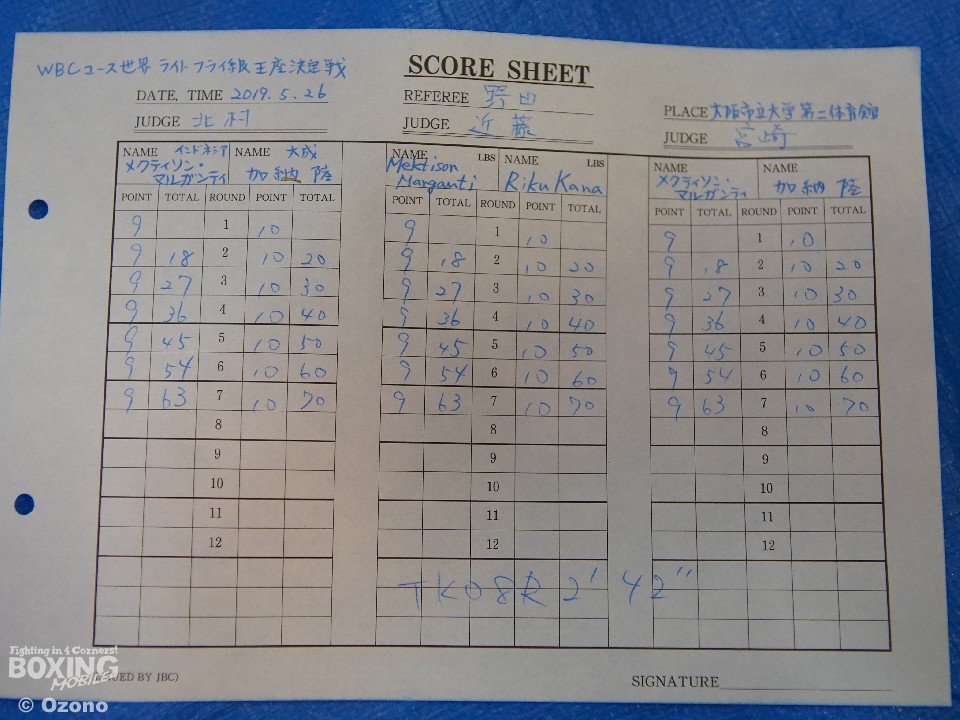 WBCユース世界 ライトフライ級王座決定戦
SCORE SHEET
DATE, TIME 2019.5.26
REFEREE 野田
PLACE 大阪市立大学第二体育館
JUDGE 北村
JUDGE 近藤
JUDGE 宮崎
NAME インドネシア NAME 大成
メクティソン・マルガンティ 加納 陸
NAME LBS NAME LBS
Mektison Marganti Riku Kana
NAME NAME
メクティソン・マルガンティ 加納 陸
POINT TOTAL ROUND POINT TOTAL POINT TOTAL ROUND POINT TOTAL POINT TOTAL ROUND POINT TOTAL
9 1 10 9 1 10 9 1 10
9 18 2 10 20 9 18 2 10 20 9 18 2 10 20
9 27 3 10 30 9 27 3 10 30 9 27 3 10 30
9 36 4 10 40 9 36 4 10 40 9 36 4 10 40
9 45 5 10 50 9 45 5 10 50 9 45 5 10 50
9 54 6 10 60 9 54 6 10 60 9 54 6 10 60
9 63 7 10 70 9 63 7 10 70 9 63 7 10 70
8 8 8
9 9 9
10 10 10
11 11 11
12 12 12
TKO8R 2'42"
UED BY JBC)
SIGNATURE
Fighting in 4 Corners!
BOXING
MOBILE
© Ozono